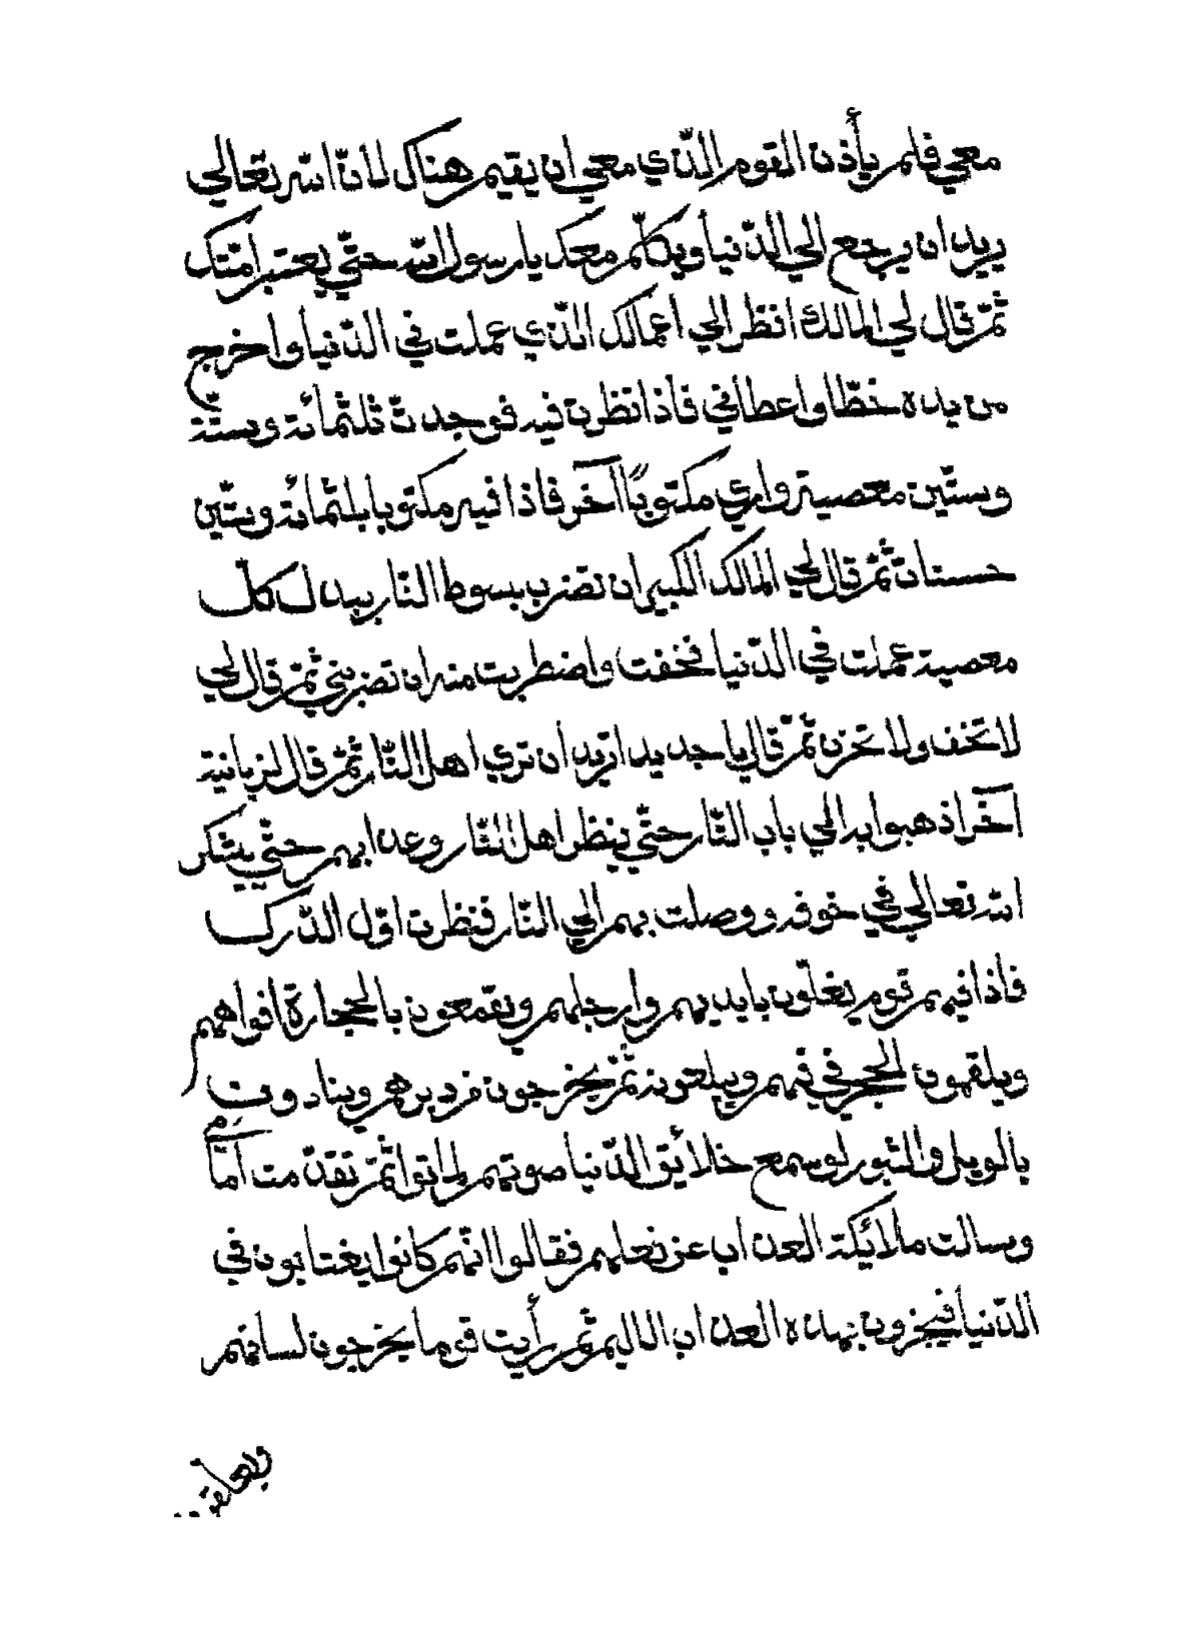 معي فلم يأذن القوم الذي معي ان يقيم هناك لأنّ الله تعالي
يريد ان يرجع الي الدّنيا ويكلّم معك يا رسول الله حتّي يعتبر امّتك
ثمّ قال لي المالك انظر الي اعمالك الذي عملت في الدّنيا واخرج
من يده خطّا واعطاني فاذا نظرت فيه فوجدت ثلثمائة وستّة
وستّين معصية واري مكتوبًا آخر فاذا فيه مكتوبا بثلثمائة وستّين
حسنات ثمّ قال لي المالك الكبير ان تضرب بسوط النّار ببدل كلّ
معصية عملت في الدّنيا فخفت واضطربت منه ان تضربني ثمّ قال لي
لا تخف ولا تحزن ثمّ قال يا جديد اتريد أن تري اهل النّار ثمّ قال لزبانية
آخر اذهبوا به الي باب النّار حتّي ينظر اهل النّار وعذابهم حتّي يشكر
الله تعالي في خوفه ووصلت بهم الي النار فنظرت اوّل الدّرك
فاذا فيهم قوم يغلّون بايديهم وارجلهم ويقمعون بالحجارة افواههم
ويلقمون الحجر في فمهم ويبلعونه ثمّ يخرجون من دبرهم وينادون
بالويل والثبور لو سمع خلائق الدّنيا صوتهم لماتوا ثمّ تقدّمت امامي
وسالت ملائكة العذاب عن فعلهم فقالوا انّهم كانوا يغتابون في
الدّنيا فيجزون بهذه العذاب الاليم ثمّ رأيت قوما يخرجون لسانهم